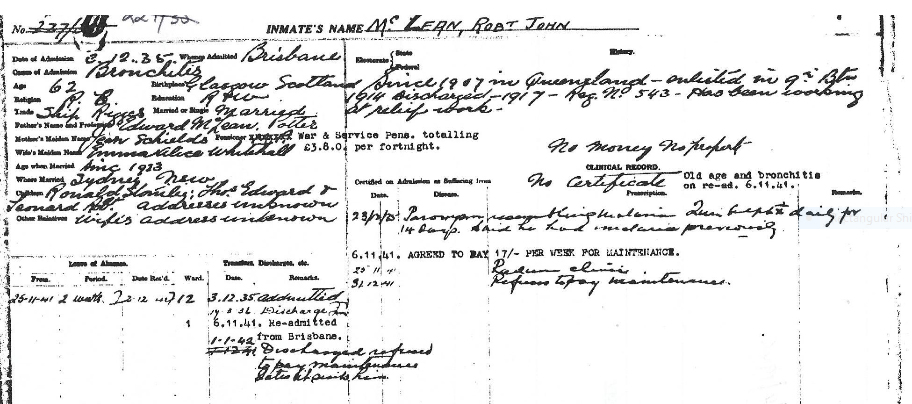 No. 237/ 221/32 INMATE'S NAME Mc LEAN, ROBT JOHN
Date of Admission 3.12.35. Whence Admitted Brisbane Electorate State Federal History.
Cause of Admission Bronchitis
Age 62 Birthplace Glasgow Scotland Since 1907 in Queensland - enlisted in 9th Btn
Religion P. E Education R & W 1914 Discharged - 1917 - Reg. No 543 - Has been working
Trade Ship Rigger Married or Single Married at relief work -
Father's Name and Profession Edward McLean,
Mother's Maiden Name Jean Schields Pensioner War & Service Pens. totalling
Wife's Maiden Name Emma Alice Whitehall £3.8.0. per fortnight. No money No property
Age when Married since 1913 CLINICAL RECORD.
Where Married Sydney NSW
Children Ronald Stanley; Thos Edward &
Leonard Robt. addresses unknown
Other Relatives Wife's address unknown
Certified on Admission as Suffering from No Certificate Old age and bronchitis
on re-ad. 6.11.41.
Date. Disease. Prescription. Remarks.
daily for
14 days. Said he had malaria previously
6.11.41. AGREED TO PAY 17/- PER WEEK FOR MAINTENANCE.
25 11 41
31.12.41 Refuses to pay maintenance.
Leave of Absence. Transfers, Discharges, etc.
From. Period. Date Ret'd. Ward. Date. Remarks.
25-11-41 2 weeks 2-12-41 12 3.12.35 admitted
Discharged
1 6.11.41. Re-admitted
from Brisbane.
1-1-42
Discharged refused
to pay maintenance
him.